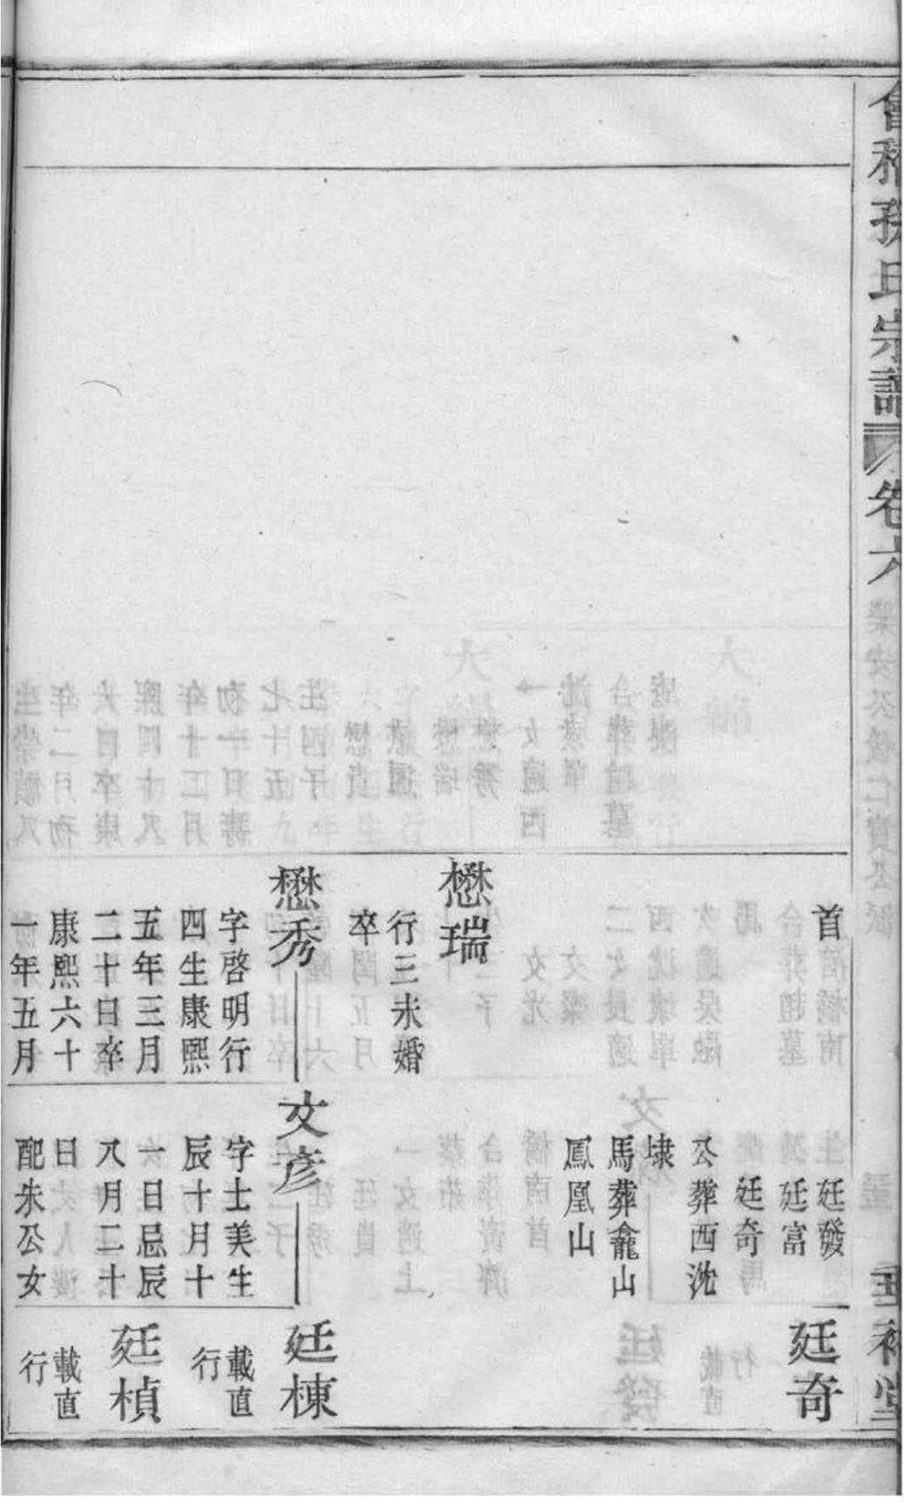 會稽孫氏宗譜
卷六
垂裕堂
首
懋瑞
行三未婚
卒
懋秀
字啓明行
四生康熙
五年三月
二十日卒
康熙六十
一年五月
廷發
廷富
廷奇
公葬西沈
埭
馬葬龕山
鳳凰山
文彦
字士美生
辰十月十
一日忌辰
八月二十
日
配朱公女
廷奇
廷棟
載直
行
廷楨
載直
行